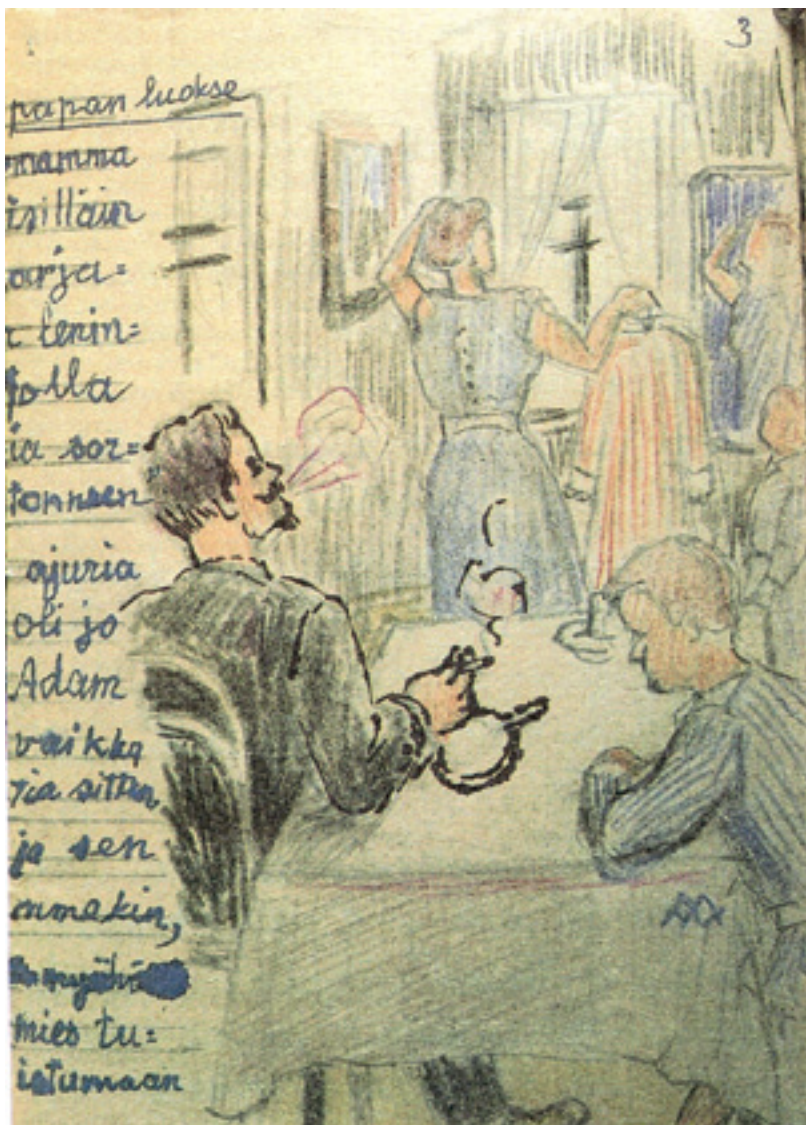 3
papan luokse
mamma
isilläin
arja=
lenin=
jolla
ia sor=
tonneen
ajuria
oli jo
Adam
vaikka
ria sitten,
ja sen
onmakin,
mies tu=
istumaan